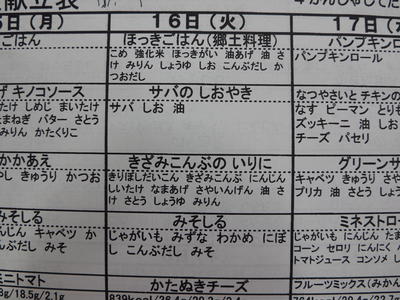 献立表
(月)
16日(火)
17日
ごはん
ほっきごはん(郷土料理)
パンプキンロール
こめ 強化米 ほっきがい 油あげ 油 さ
け みりん しょうゆ しお こんぶだし か
つおだし
パンプキンロール
キノコソース
サバの しおやき
なつやさいと チキンの
いたけ しめじ まいたけ
たまねぎ バター さとう
みりん かたくりこ
サバ しお 油
なす ピーマン とりも
ズッキーニ 油 しお
チーズ パセリ
かかあえ
きざみこんぶの いりに
グリーンサ
やし きゅうり かつお
きりぼしだいこん きざみこんぶ にんじん
しいたけ なまあげ さやいんげん 油 さ
け さとう しょうゆ みりん
キャベツ きゅうり
プリカ 油 さとう し
みそしる
みそしる
ミネストロー
にんじん キャベツ か
こんぶだし みそ
じゃがいも みずな わかめ にぼ
し こんぶだし みそ
じゃがいも にんじん た
コーン セロリ にんにく
トマトジュース コンソメ
ミニトマト
かたぬきチーズ
フルーツミックス(みかん
18.5g/2.1g
839kcal